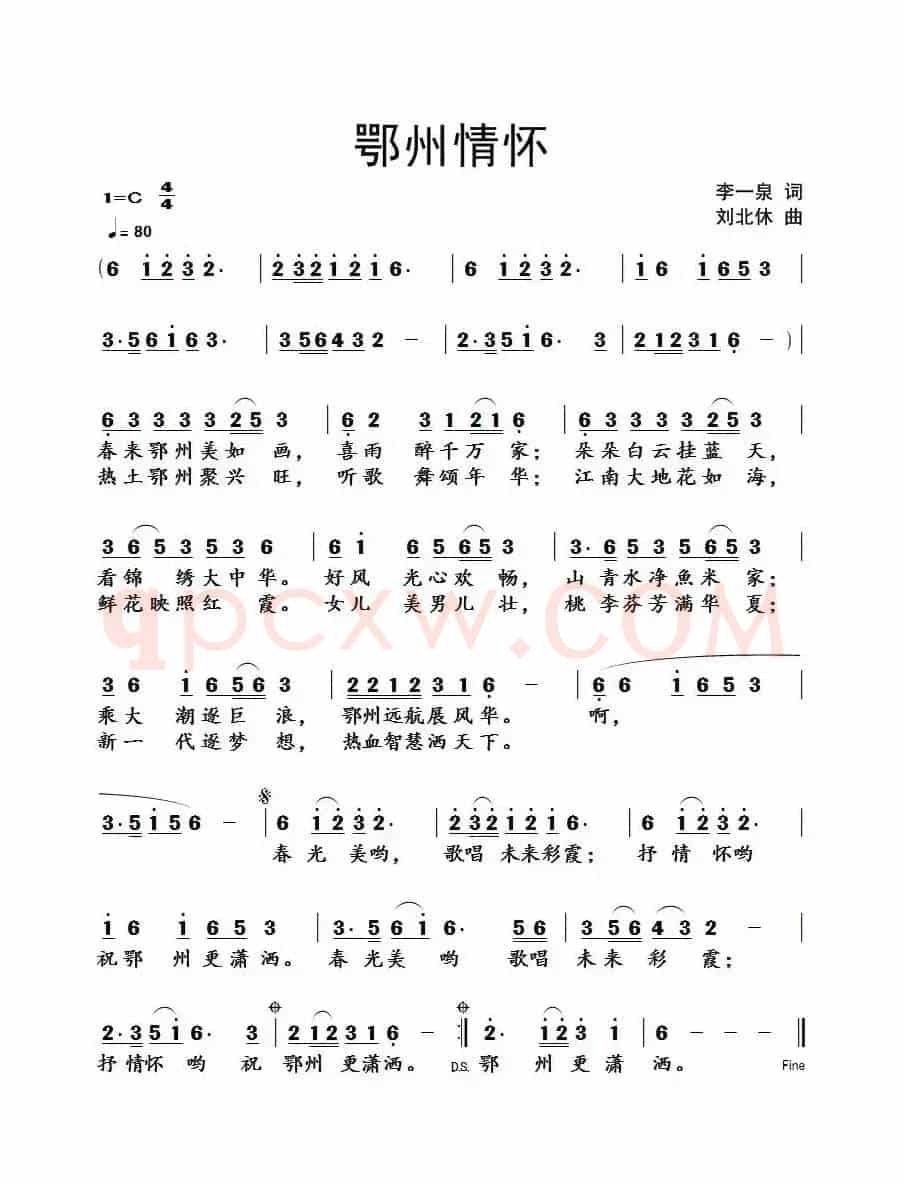 鄂州情怀
1=C 4/4
李一泉 词
♩= 80
刘北休 曲
( 6 1̇ 2̇ 3̇ 2̇· | 2̇ 3̇ 2̇ 1̇ 2̇ 1̇ 6· | 6 1̇ 2̇ 3̇ 2̇· | 1̇ 6 1̇ 6 5 3 |
3· 5 6 1̇ 6 3· | 3 5 6 4 3 2 – | 2· 3 5 1̇ 6· 3 | 2 1 2 3 1 6̣ – ) |
6̣ 3 3 3 3 2 5 3 | 6̣ 2 3 1 2 1 6̣ | 6̣ 3 3 3 3 2 5 3 |
春来鄂州美如 画， 喜雨 醉千万 家； 朵朵白云挂蓝 天，
热土鄂州聚兴 旺， 听歌 舞颂年 华； 江南大地花如 海，
3 6 5 3 5 3 6 | 6 1̇ 6 5 6 5 3 | 3· 6 5 3 5 6 5 3 |
看锦 绣大中华。 好风 光心欢 畅， 山 青水净魚米 家；
鲜花映照红 霞。 女儿 美男儿 壮， 桃 李芬芳满华 夏；
qpcxw.COM
3 6 1̇ 6 5 6 3 | 2 2 1 2 3 1 6̣ – | 6̣ 6 1̇ 6 5 3 |
乘大 潮逐巨 浪， 鄂州远航展风华。 啊，
新一 代逐梦 想， 热血智慧洒天下。
3· 5 1̇ 5 6 – 𝄋 | 6 1̇ 2̇ 3̇ 2̇· | 2̇ 3̇ 2̇ 1̇ 2̇ 1̇ 6· | 6 1̇ 2̇ 3̇ 2̇· |
春光 美哟， 歌唱 未来彩霞； 抒情 怀哟
1̇ 6 1̇ 6 5 3 | 3· 5 6 1̇ 6· 5 6 | 3 5 6 4 3 2 – |
祝鄂 州更潇 洒。 春 光美 哟 歌唱 未来 彩 霞；
2· 3 5 1̇ 6· 3 𝄌 | 2 1 2 3 1 6̣ – 𝄌 :‖ 2̇· 1̇ 2̇ 3̇ 1̇ | 6 – – – ‖
抒 情怀 哟 祝 鄂州 更潇洒。 D.S. 鄂 州 更 潇 洒。 Fine